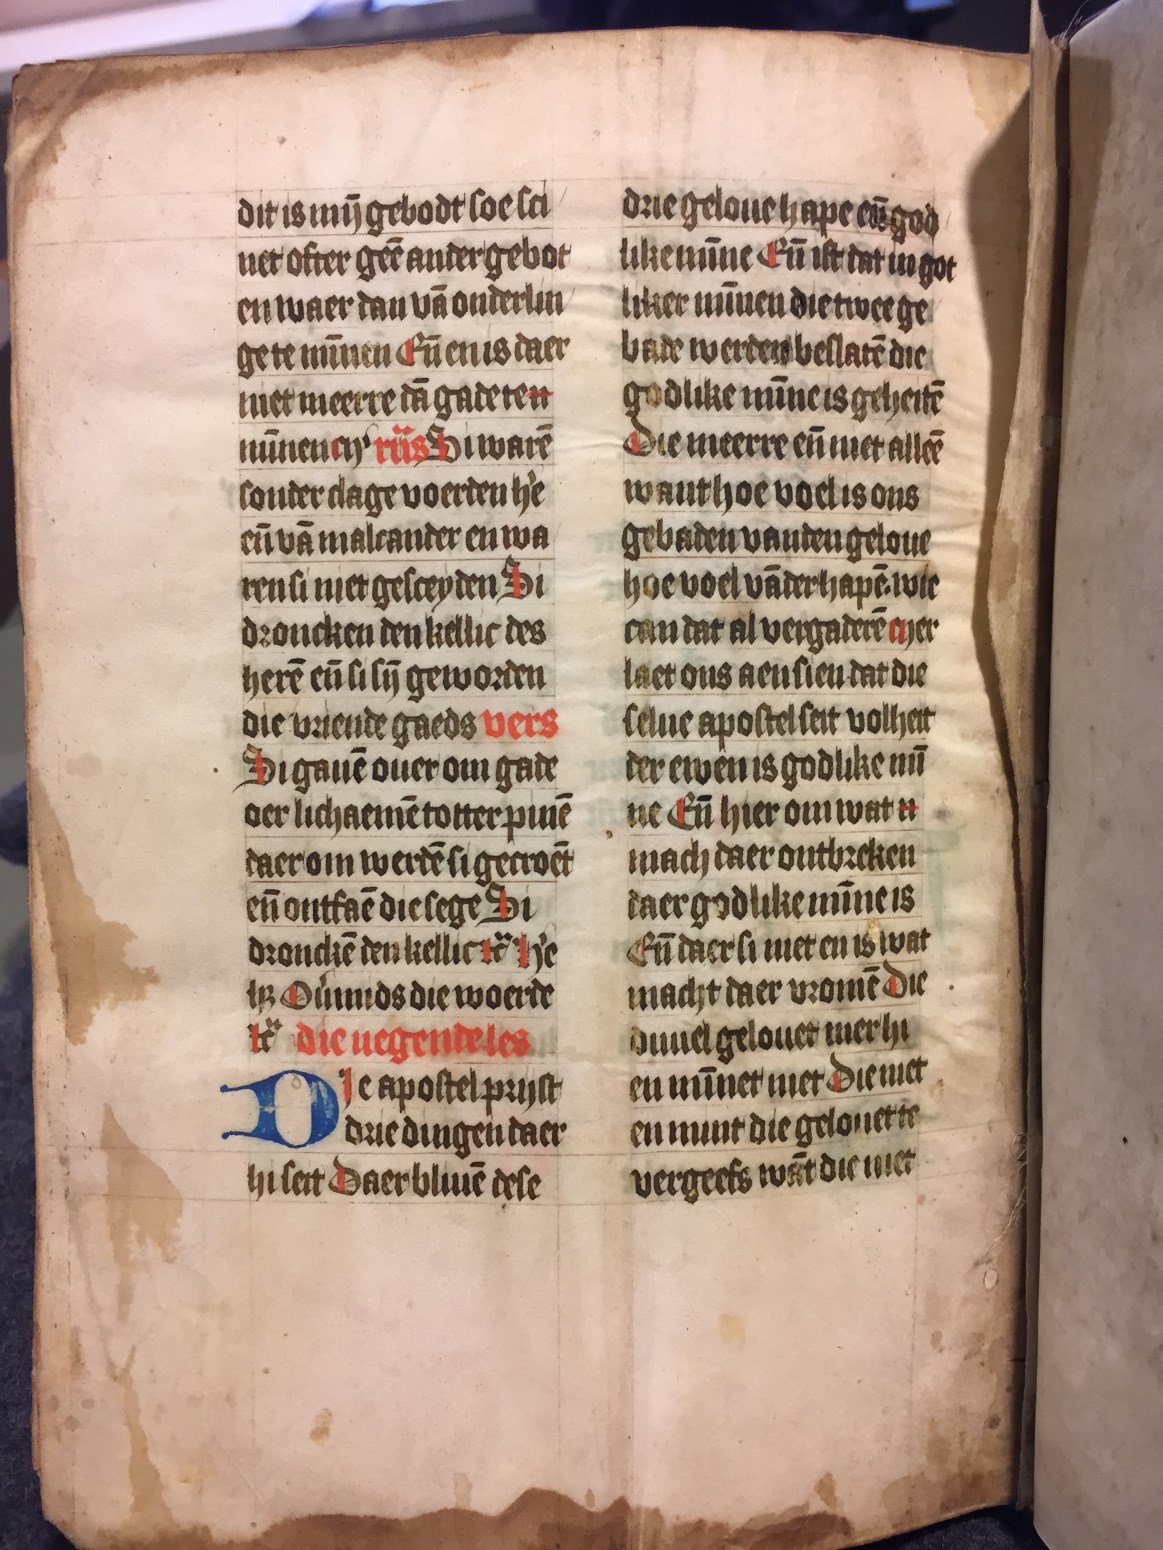 dit is mij̄ gebodt soe sci
net ofter geē ander gebot
en waer dan vā onderlin
ge te mīnen Eñ en is daer
niet meerre dā gade te
mīnen
sonder dage voerden
eñ vā malcander en wa
ren si niet gesceyden Si
droncken den kellic des
herē eñ si sij̄ geworden
die vriende gaeds vers
Si gauē ouer om gade
oer lichaemē totter pinē
daer om werdē si gecroēt
eñ ontfaē die sege Si
dronckē den kellic
die woerde
die negende les
Die apostel prijst
drie dingen daer
hi seit Daer bliuē dese
drie geloue hape eñ god
like mīne Eñ ist dat in got
liker mīnen die twee ge
bade werden beslatē die
godlike mīne is geheitē
Die meerre eñ niet alleē
want hoe voel is ons
gebaden vanden geloue
hoe voel vāder hapē. wie
can dat al vergaderē mer
laet ons aensien dat die
selue apostel seit volheit
der ewen is godlike mī
ne Eñ hier om wat
mach daer ontbreken
daer godlike mīne is
Eñ daer si niet en is wat
macht daer vromē Die
duuel gelouet mer hi
en mīnet niet Die niet
en mint die gelouet te
vergeefs wāt die niet